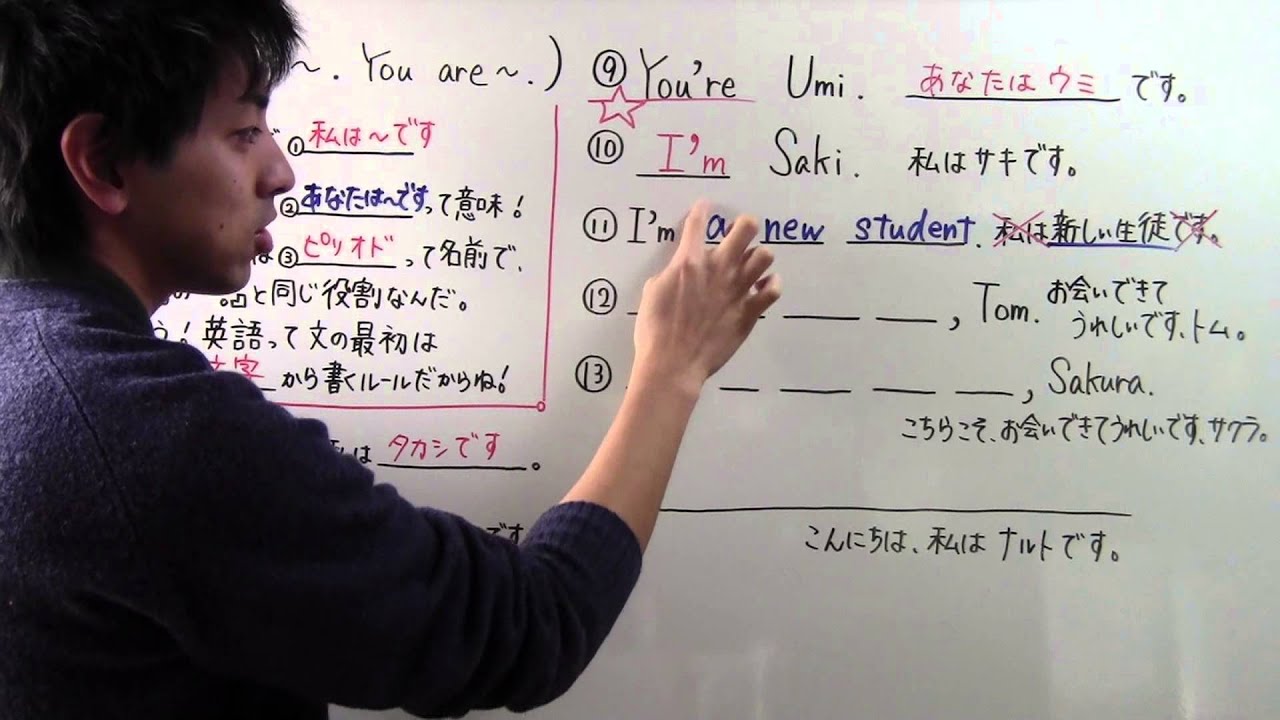 ~. You are ~.)
① 私は~です
② あなたは~ですって意味!
は③ ピリオド って名前で、
と同じ役割なんだ。
う!英語って文の最初は
文字 から書くルールだからね!
私は タカシです 。
です
⑨ You're Umi. あなたは ウミ です。
⑩ I'm Saki. 私はサキです。
⑪ I'm a new student. 私は新しい生徒です。
⑫ , Tom. お会いできて
うれしいです、トム。
⑬ , Sakura.
こちらこそ、お会いできてうれしいです、サクラ。
こんにちは、私は ナルトです。